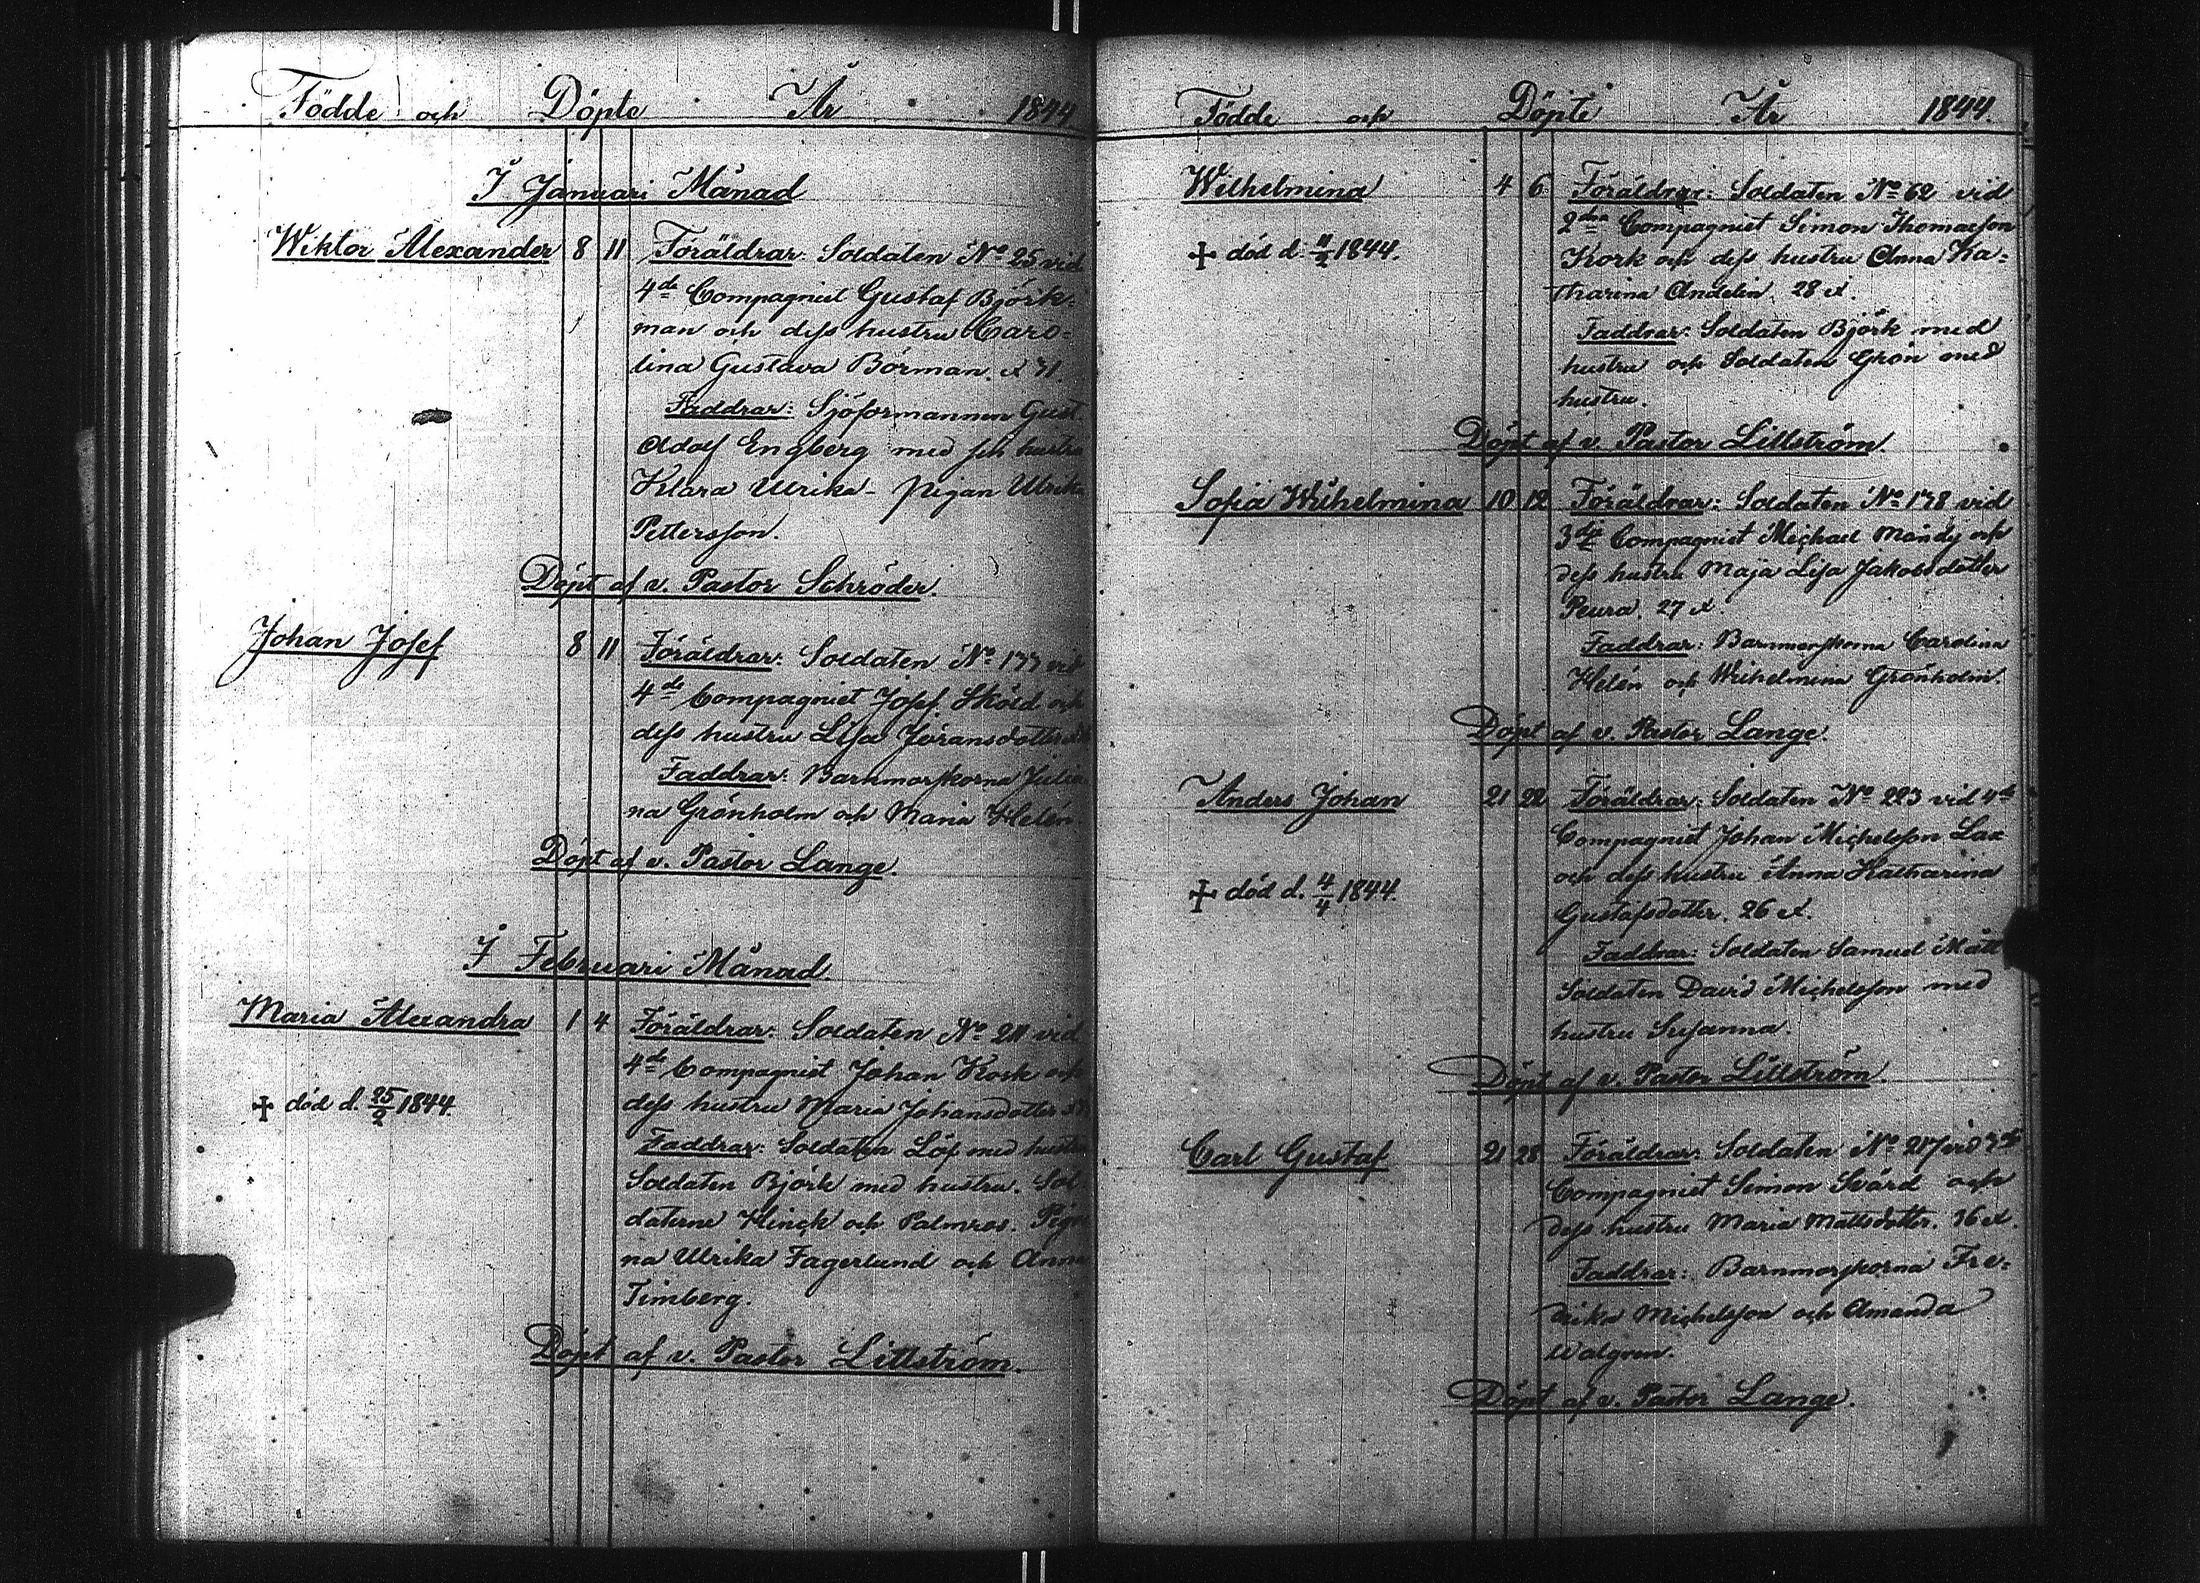 Födde och Döpte År 1844
I Januari Månad
Wiktor Alexander 8 11 Föräldrar: Soldaten No 25 vid
4de Compagniet Gustaf Björk-
man och dess hustru Caro-
lina Gustava Börman. æt 31.
Faddrar: Sjöformannen Gust.
Adolf Engberg med sin hustru
Klara Ulrika - pigan Ulrika
Pettersson.
Döpt af v. Pastor Schröder.
Johan Josef 8 11 Föräldrar: Soldaten No 177 vid
4de Compagniet Josef Sköld och
dess hustru Lisa Jöransdotter
Faddrar: Barnmorskorna Julia-
na Grönholm och Maria Helén
Döpt af v. Pastor Lange.
I Februari Månad
Maria Alexandra 1 4 Föräldrar: Soldaten No 211 vid
4de Compagniet Johan Kork och
dess hustru Maria Johansdotter
† död d. 25/2 1844.
Faddrar: Soldaten Löf med hustru
Soldaten Björk med hustru. Sol
daterne Hinck och Palmros. Pigor
na Ulrika Fagerlund och Anna
Timberg.
Döpt af v. Pastor Littström.
Födde och Döpte År 1844.
Wilhelmina 4 6 Föräldrar: Soldaten No 62 vid
2dra Compagniet Simon Thomasson
† död d. 11/2 1844.
Kork och dess hustru Anna Ka-
tharina Andelin. 28 æt.
Faddrar: Soldaten Björk med
hustru och Soldaten Grön med
hustru.
Döpt af v. Pastor Littström.
Sofia Wilhelmina 10 12 Föräldrar: Soldaten No 178 vid
3dje Compagniet Michael Mandj och
dess hustru Maja Lisa Jakobsdotter
Peura. 27 æt.
Faddrar: Barnmorskorna Carolina
Helén och Wilhelmina Grönholm.
Döpt af v. Pastor Lange.
Anders Johan 21 22 Föräldrar: Soldaten No 223 vid 4de
Compagniet Johan Michelsson Lax
och dess hustru Anna Katharina
† död d. 4/4 1844.
Gustafsdotter. 26 æt.
Faddrar: Soldaten Samuel Matt
Soldaten David Michelsson med
hustru Susanna.
Döpt af v. Pastor Littström.
Carl Gustaf 21 28 Föräldrar: Soldaten No 217 vid
Compagniet Simon Svärd och
dess hustru Maria Mattsdotter. 36 æt.
Faddrar: Barnmorskorna Fre-
drika Michelsson och Amanda
Walgren.
Döpt af v. Pastor Lange.